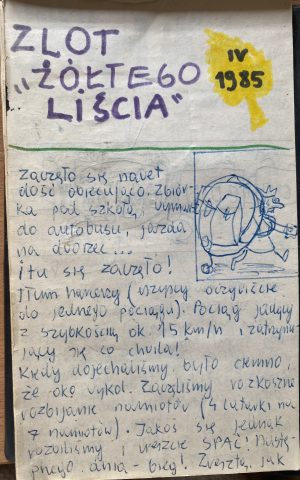 ZLOT
„ŻÓŁTEGO
LIŚCIA"
IV
1985
Zaczęło się nawet
dość obiecująco. Zbiór-
ka pod szkołą, wymarsz
do autobusu, jazda
na dworzec...
i tu się zaczęło!
Tłum harcerzy (wszyscy oczywiście
do jednego pociągu). Pociąg jadący
z szybkością ok. 15 km/h i zatrzymu-
jący się co chwila!
Kiedy dojechaliśmy było ciemno,
że oko wykol. Zaczęliśmy rozkoszne
rozbijanie namiotów (4 latarki na
7 namiotów). Jakoś się jednak
rozbiliśmy i wreszcie SPAĆ! Nastę-
pnego dnia - bieg! Zresztą, jak